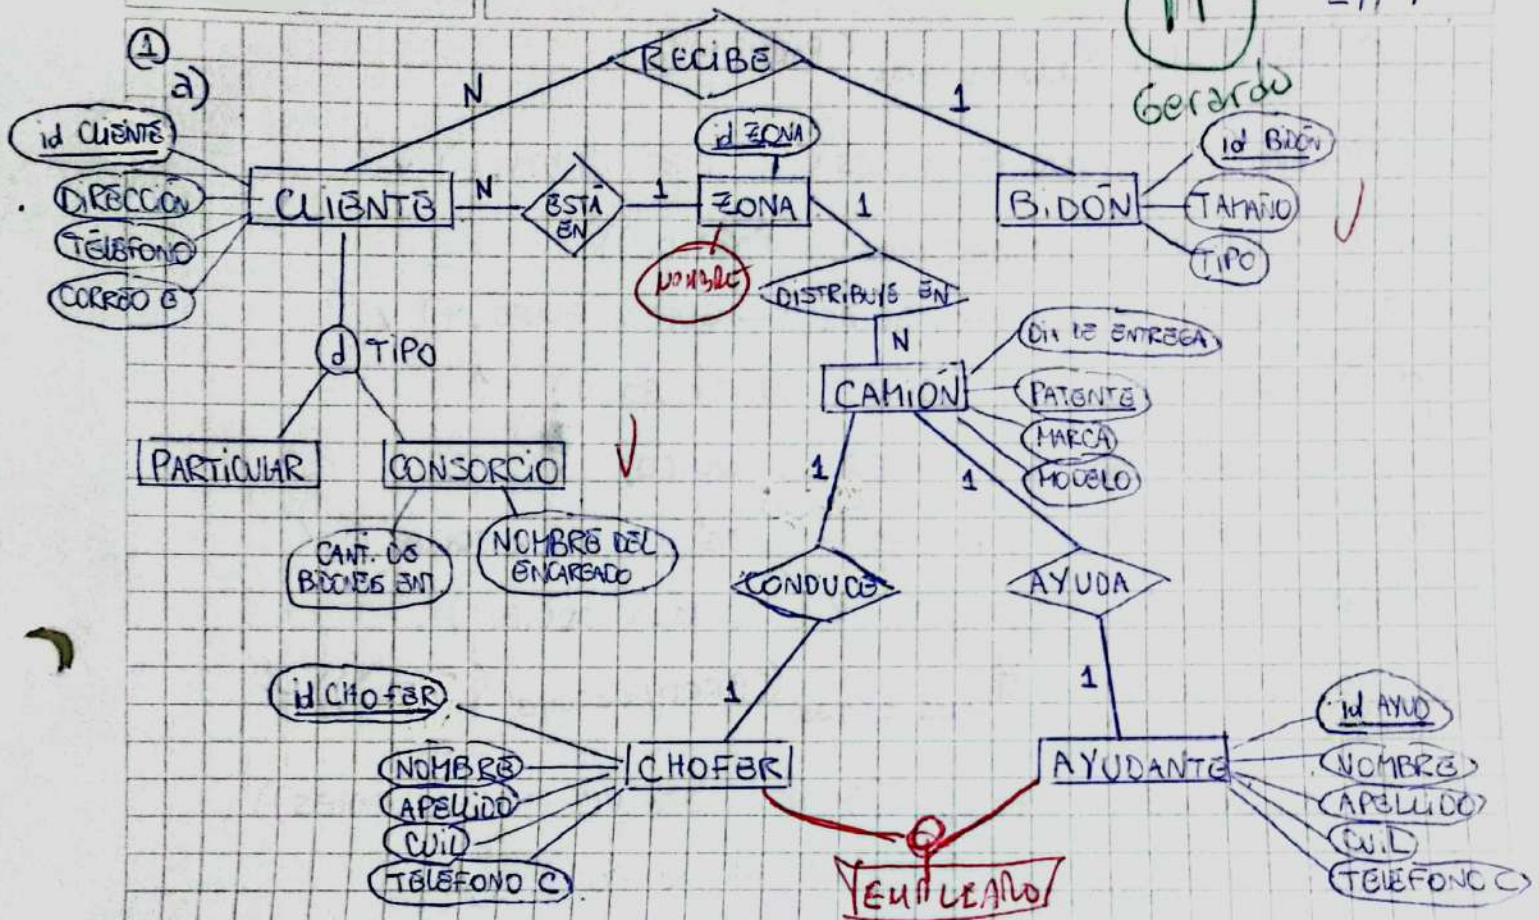 1
a)
RECIBE
N
1
Gerardo
id CLIENTE
DIRECCIÓN
TELÉFONO
CORREO E
CLIENTE
N
ESTÁ
EN
1
id ZONA
ZONA
NOMBRE
1
BIDÓN
id BIDÓN
TAMAÑO
TIPO
DISTRIBUYE EN
N
d TIPO
CAMIÓN
PATENTE
MARCA
MODELO
PARTICULAR
CONSORCIO
CANT. DE
BIDONES ENT
NOMBRE DEL
ENCARGADO
1
1
CONDUCE
AYUDA
1
1
id CHOFER
NOMBRE
APELLIDO
CUIL
TELÉFONO C
CHOFER
AYUDANTE
id AYUD
NOMBRE
APELLIDO
CUIL
TELEFONO C
EMPLEADO